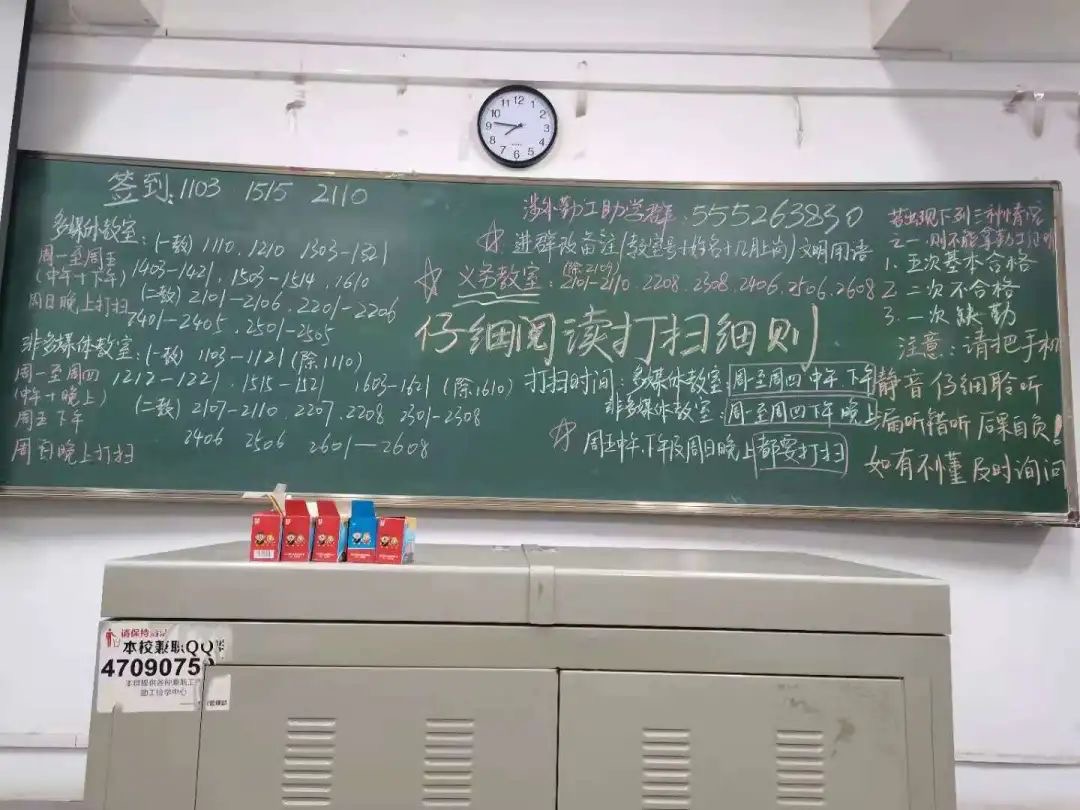 签到:1103 1515 2110
多媒体教室:(一教)1110.1210 1303-1321
周一至周五
(中午+下午)
周日晚上打扫
1403-1421.1503-1514.1610
(二教)2101-2106.2201-2206
2401-2405.2501-2505
非多媒体教室:(一教)1103-1121(除1110)
周一至周四
(中午+晚上)
周五下午
周日晚上打扫
1212-1221.1515-1521 1603-1621(除1610)
(二教)2107-2110.2207.2208 2301-2308
2406 2506 2601—2608
涉外勤工助学群:555263830
☆进群改备注(教室号+姓名+几月上岗)文明用语
(除2109)
☆义务教室:2101-2110.2208.2308.2406.2506.2608
仔细阅读打扫细则
打扫时间:多媒体教室:周一至周四中午下午
非多媒体教室:周一至周四下午晚上
☆周五中午.下午及周日晚上都要打扫
若出现下列三种情况
之一,则不能拿勤工证明
1.五次基本合格
2.二次不合格
3.一次缺勤
注意:请把手机
静音仔细聆听
漏听错听后果自负!
如有不懂及时询问
12 1 2 3 4 5 6 7 8 9 10 11
请保持
本校兼职QQ
4709075
本群提供各种兼职
勤工俭学中心